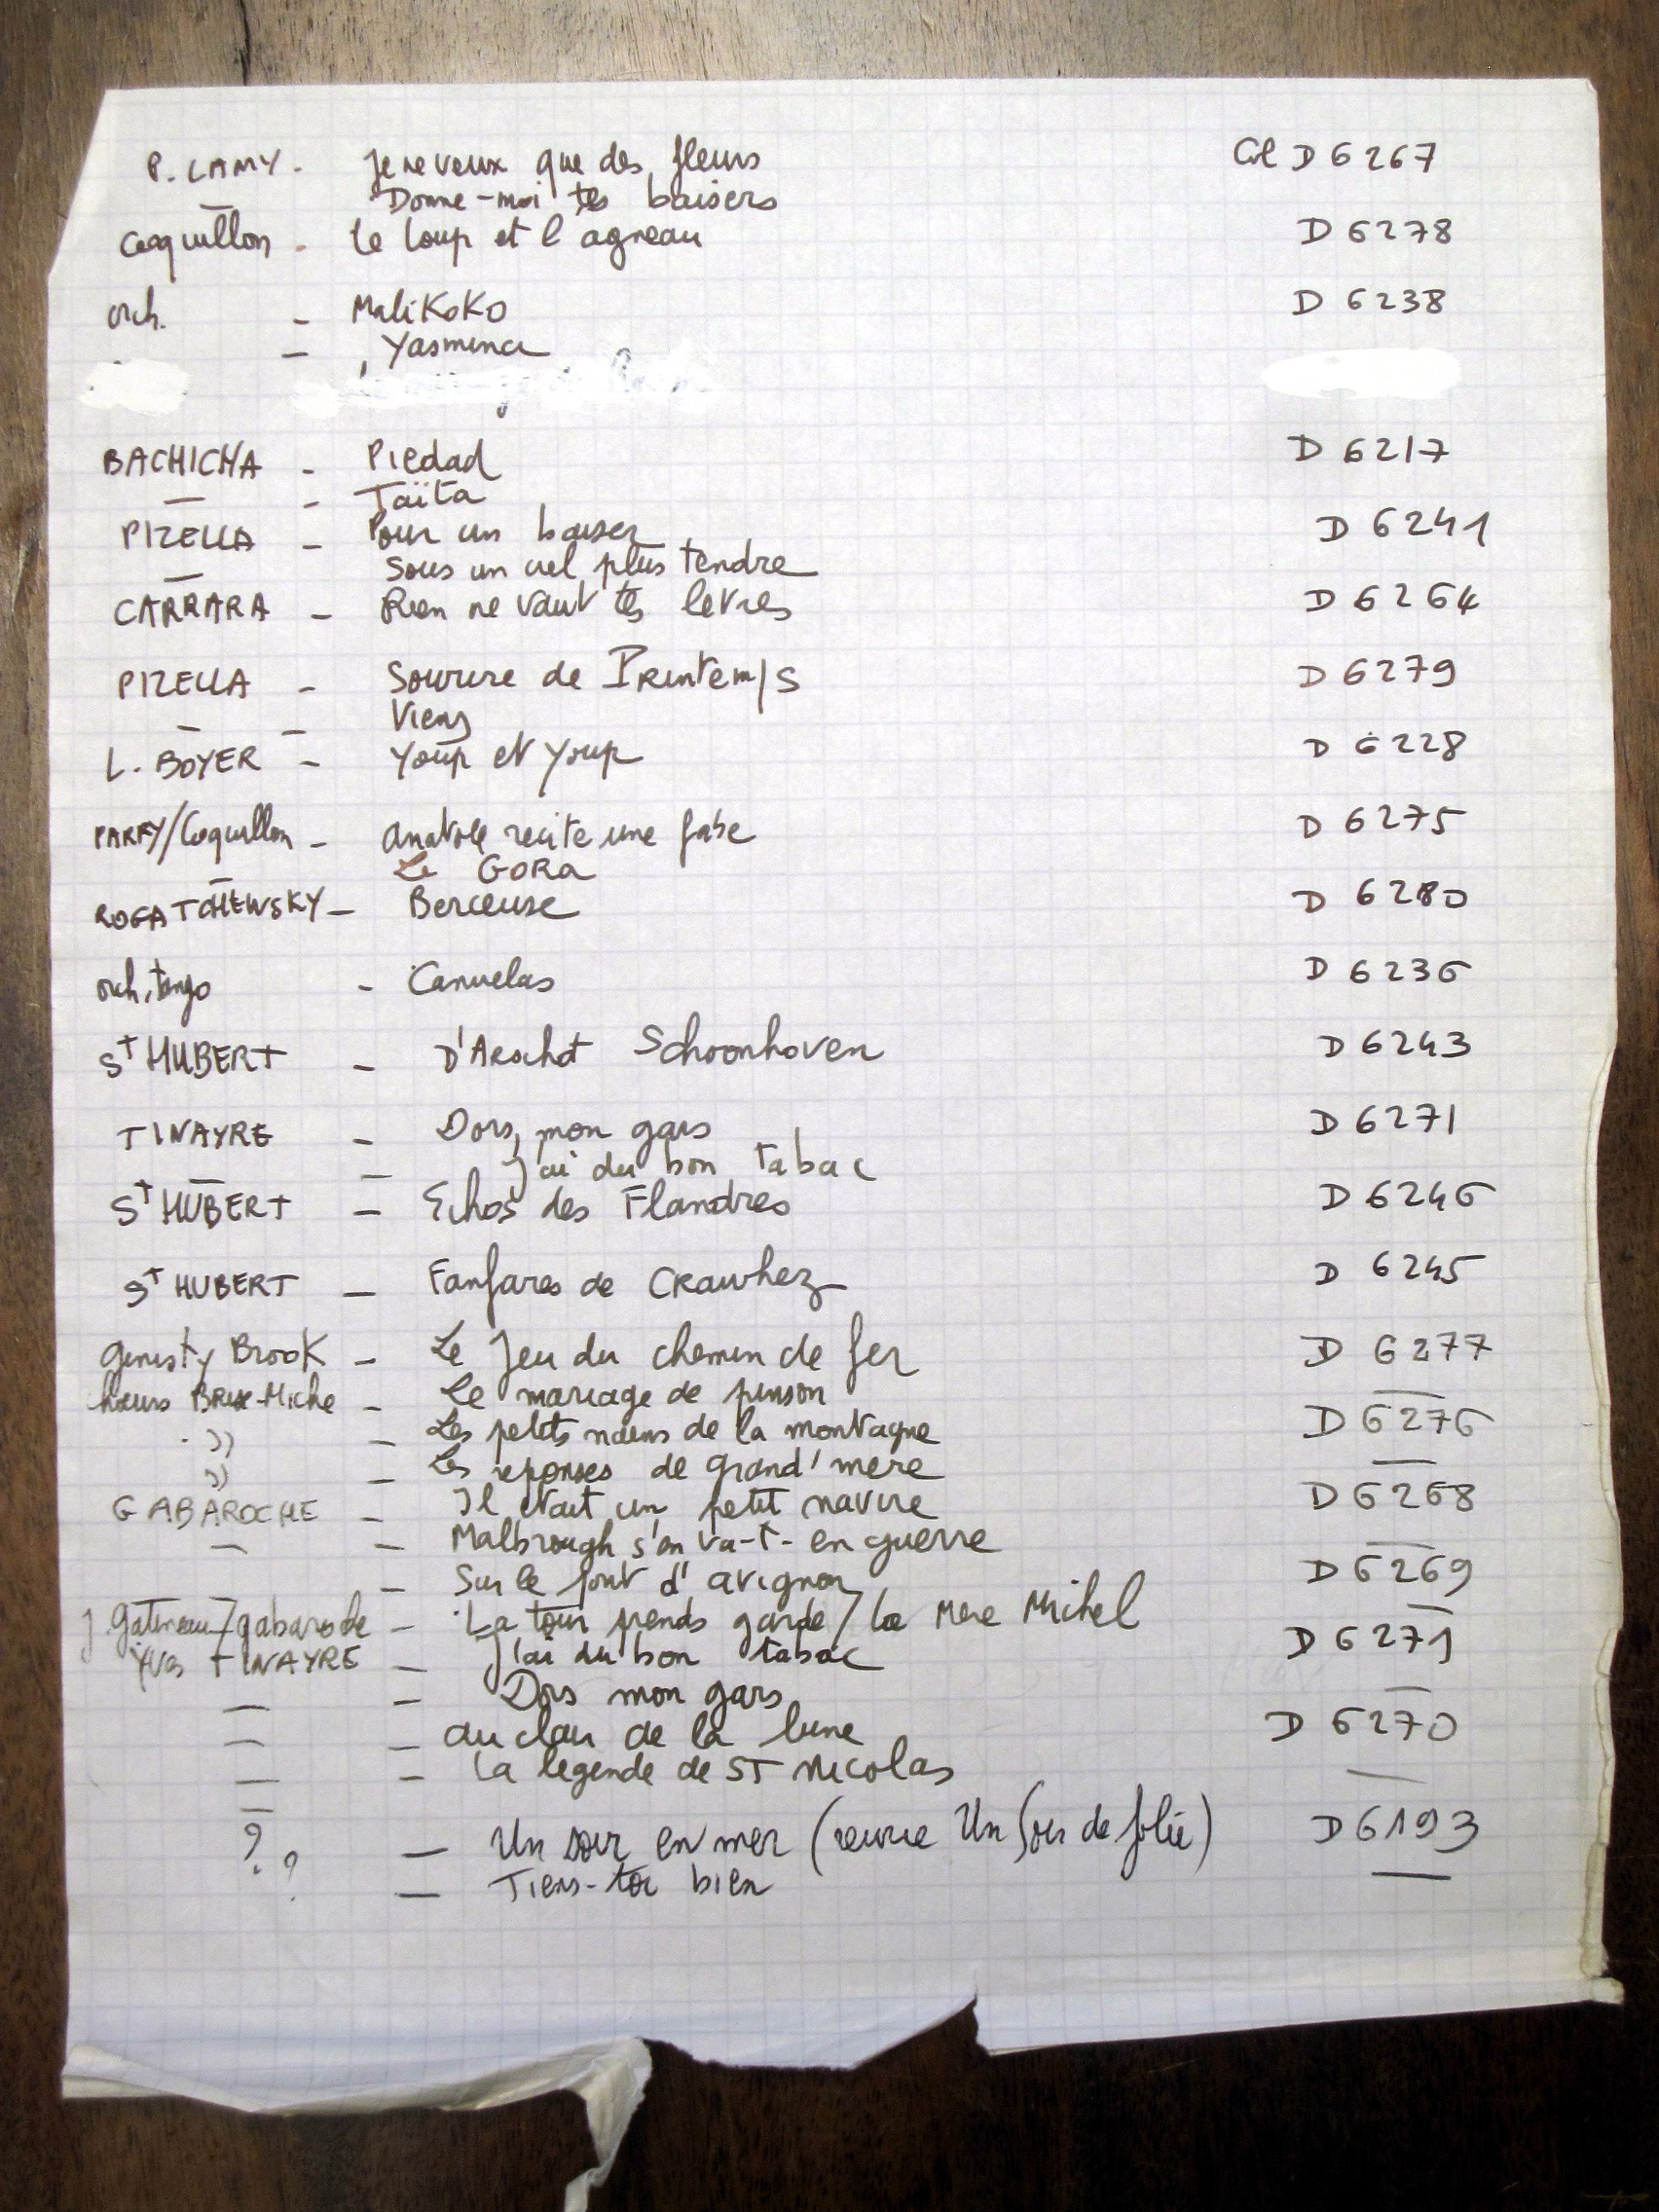 P. LAMY. Je ne veux que des fleurs Col D 6267
— Donne-moi tes baisers
Coquillon - Le loup et l'agneau D 6278
orch. - MaliKoKo D 6238
- Yasmina
BACHICHA - Piedad D 6217
— - Taïta
PIZELLA - Pour un baiser D 6241
— Sous un ciel plus tendre
CARRARA - Rien ne vaut tes levres D 6264
PIZELLA - Sourire de Printemps D 6279
— - Viens
L. BOYER - Youp et Youp D 6228
PARRY/Coquillon - Anatole recite une fable D 6275
— Le GORA
ROGATCHEWSKY - Berceuse D 6280
orch. tango - Canuelas D 6236
St HUBERT - D'Arschot Schoonhoven D 6243
TINAYRE - Dors, mon gars D 6271
— - J'ai du bon tabac
St HUBERT - Echos des Flandres D 6246
St HUBERT - Fanfares de CRAWhez D 6245
Genisty BrooK - Le Jeu du chemin de fer D 6277
choeurs Brise-Miche - Le mariage de pinson —
" - Les petits nains de la montagne D 6276
" - Les reponses de Grand'mere —
GABAROCHE - Il etait un petit navire D 6268
— - Malbrough s'en va-t-en guerre —
- Sur le pont d'avignon D 6269
J Gatineau/gabaroche - La tour prends garde / la Mere Michel —
Yves TINAYRE - J'ai du bon tabac D 6271
— - Dors mon gars —
— - au clair de la lune D 6270
— - La legende de ST Nicolas —
? - Un soir en mer (revue Un Soir de folie) D 6193
? - Tiens-toi bien —